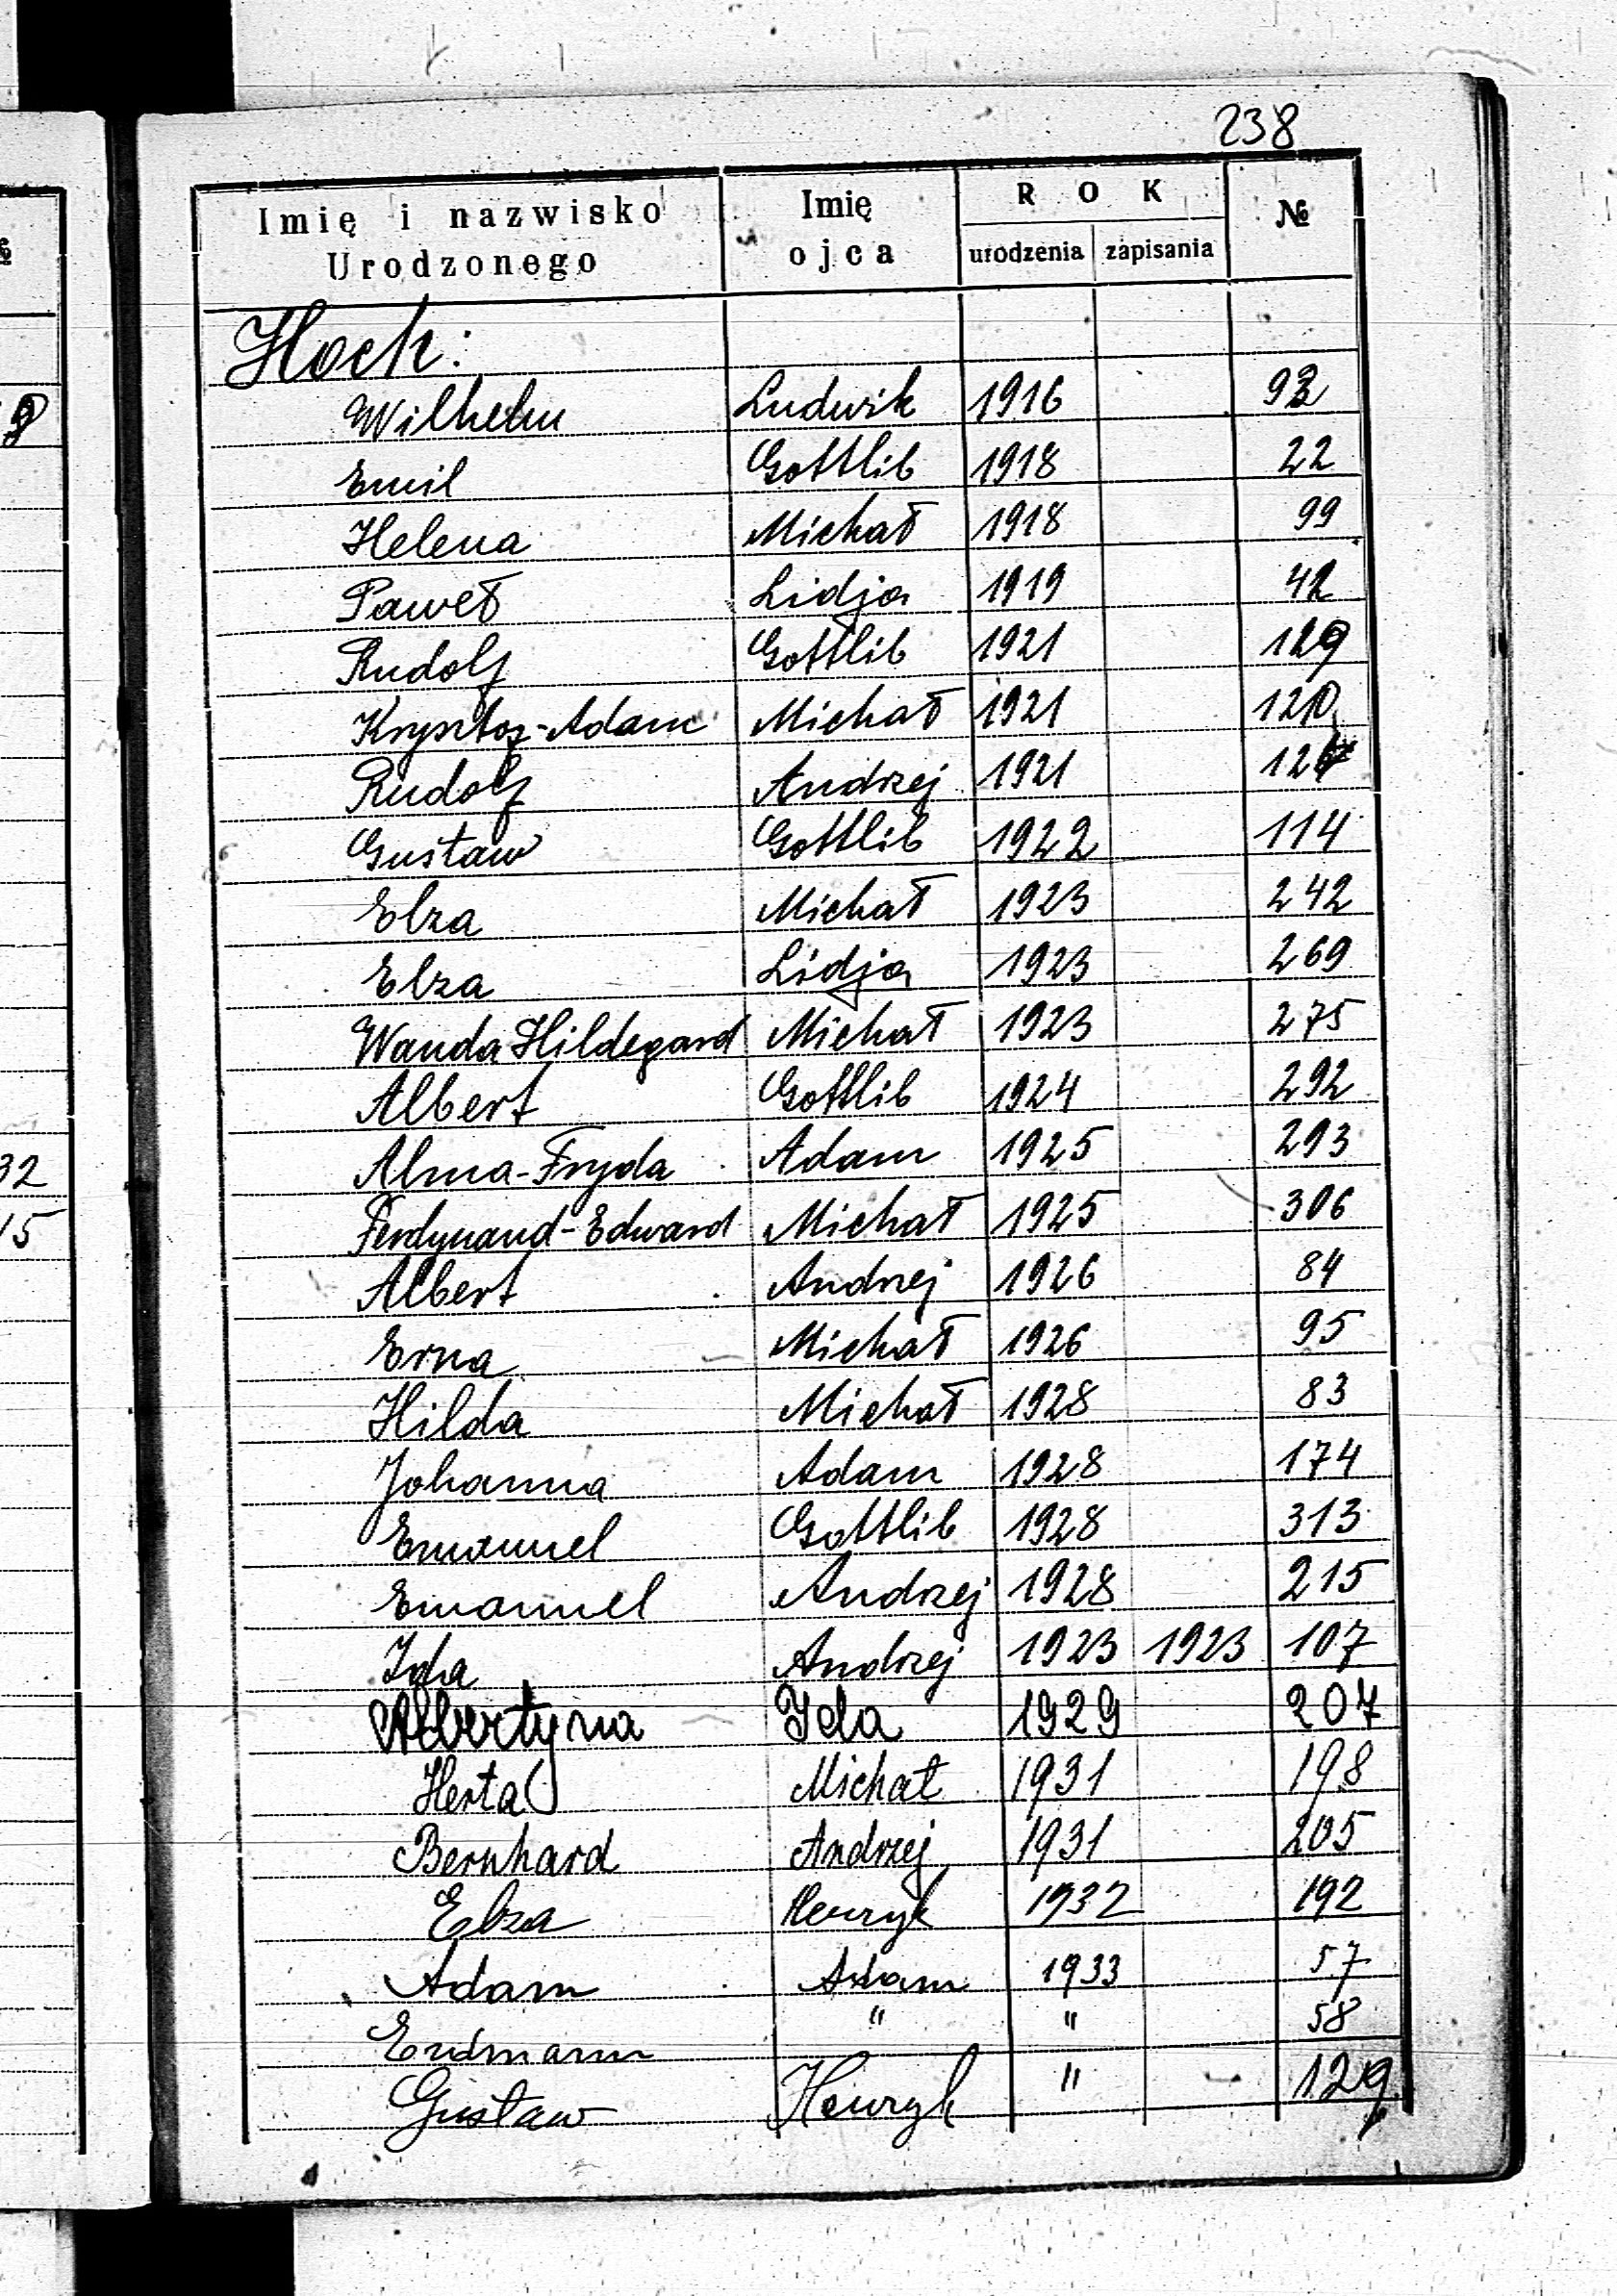 238
Imię i nazwisko Urodzonego | Imię ojca | ROK urodzenia | zapisania | №
Hoch:
Wilhelm Ludwik 1916
Emil Gottlib 1918 22
Helena Michał 1918 99
Paweł Lidja 1919
Rudolf Gottlib 1921 129
Krysztof-Adam Michał 1921
Rudolf Andrzej 1921
Gustaw Gottlib 1922 114
Elza Michał 1923 242
Elza Lidja 1923 269
Wanda Hildegard Michał 1923 275
Albert Gottlib 1924 292
Alma-Fryda Adam 1925 293
Ferdynand-Edward Michał 1925 306
Albert Andrzej 1926 84
Erna Michał 1926 95
Hilda Michał 1928 83
Johanna Adam 1928 174
Emanuel Gottlib 1928 313
Emanuel Andrzej 1928 215
Ida Andrzej 1923 1923 107
Albertyna Ida 1929 207
Herta Michał 1931 198
Bernhard Andrzej 1931 205
Elza Henryk 1932 192
Adam Adam 1933 57
Erdmann " " 58
Gustaw Henryk " 129
32
15